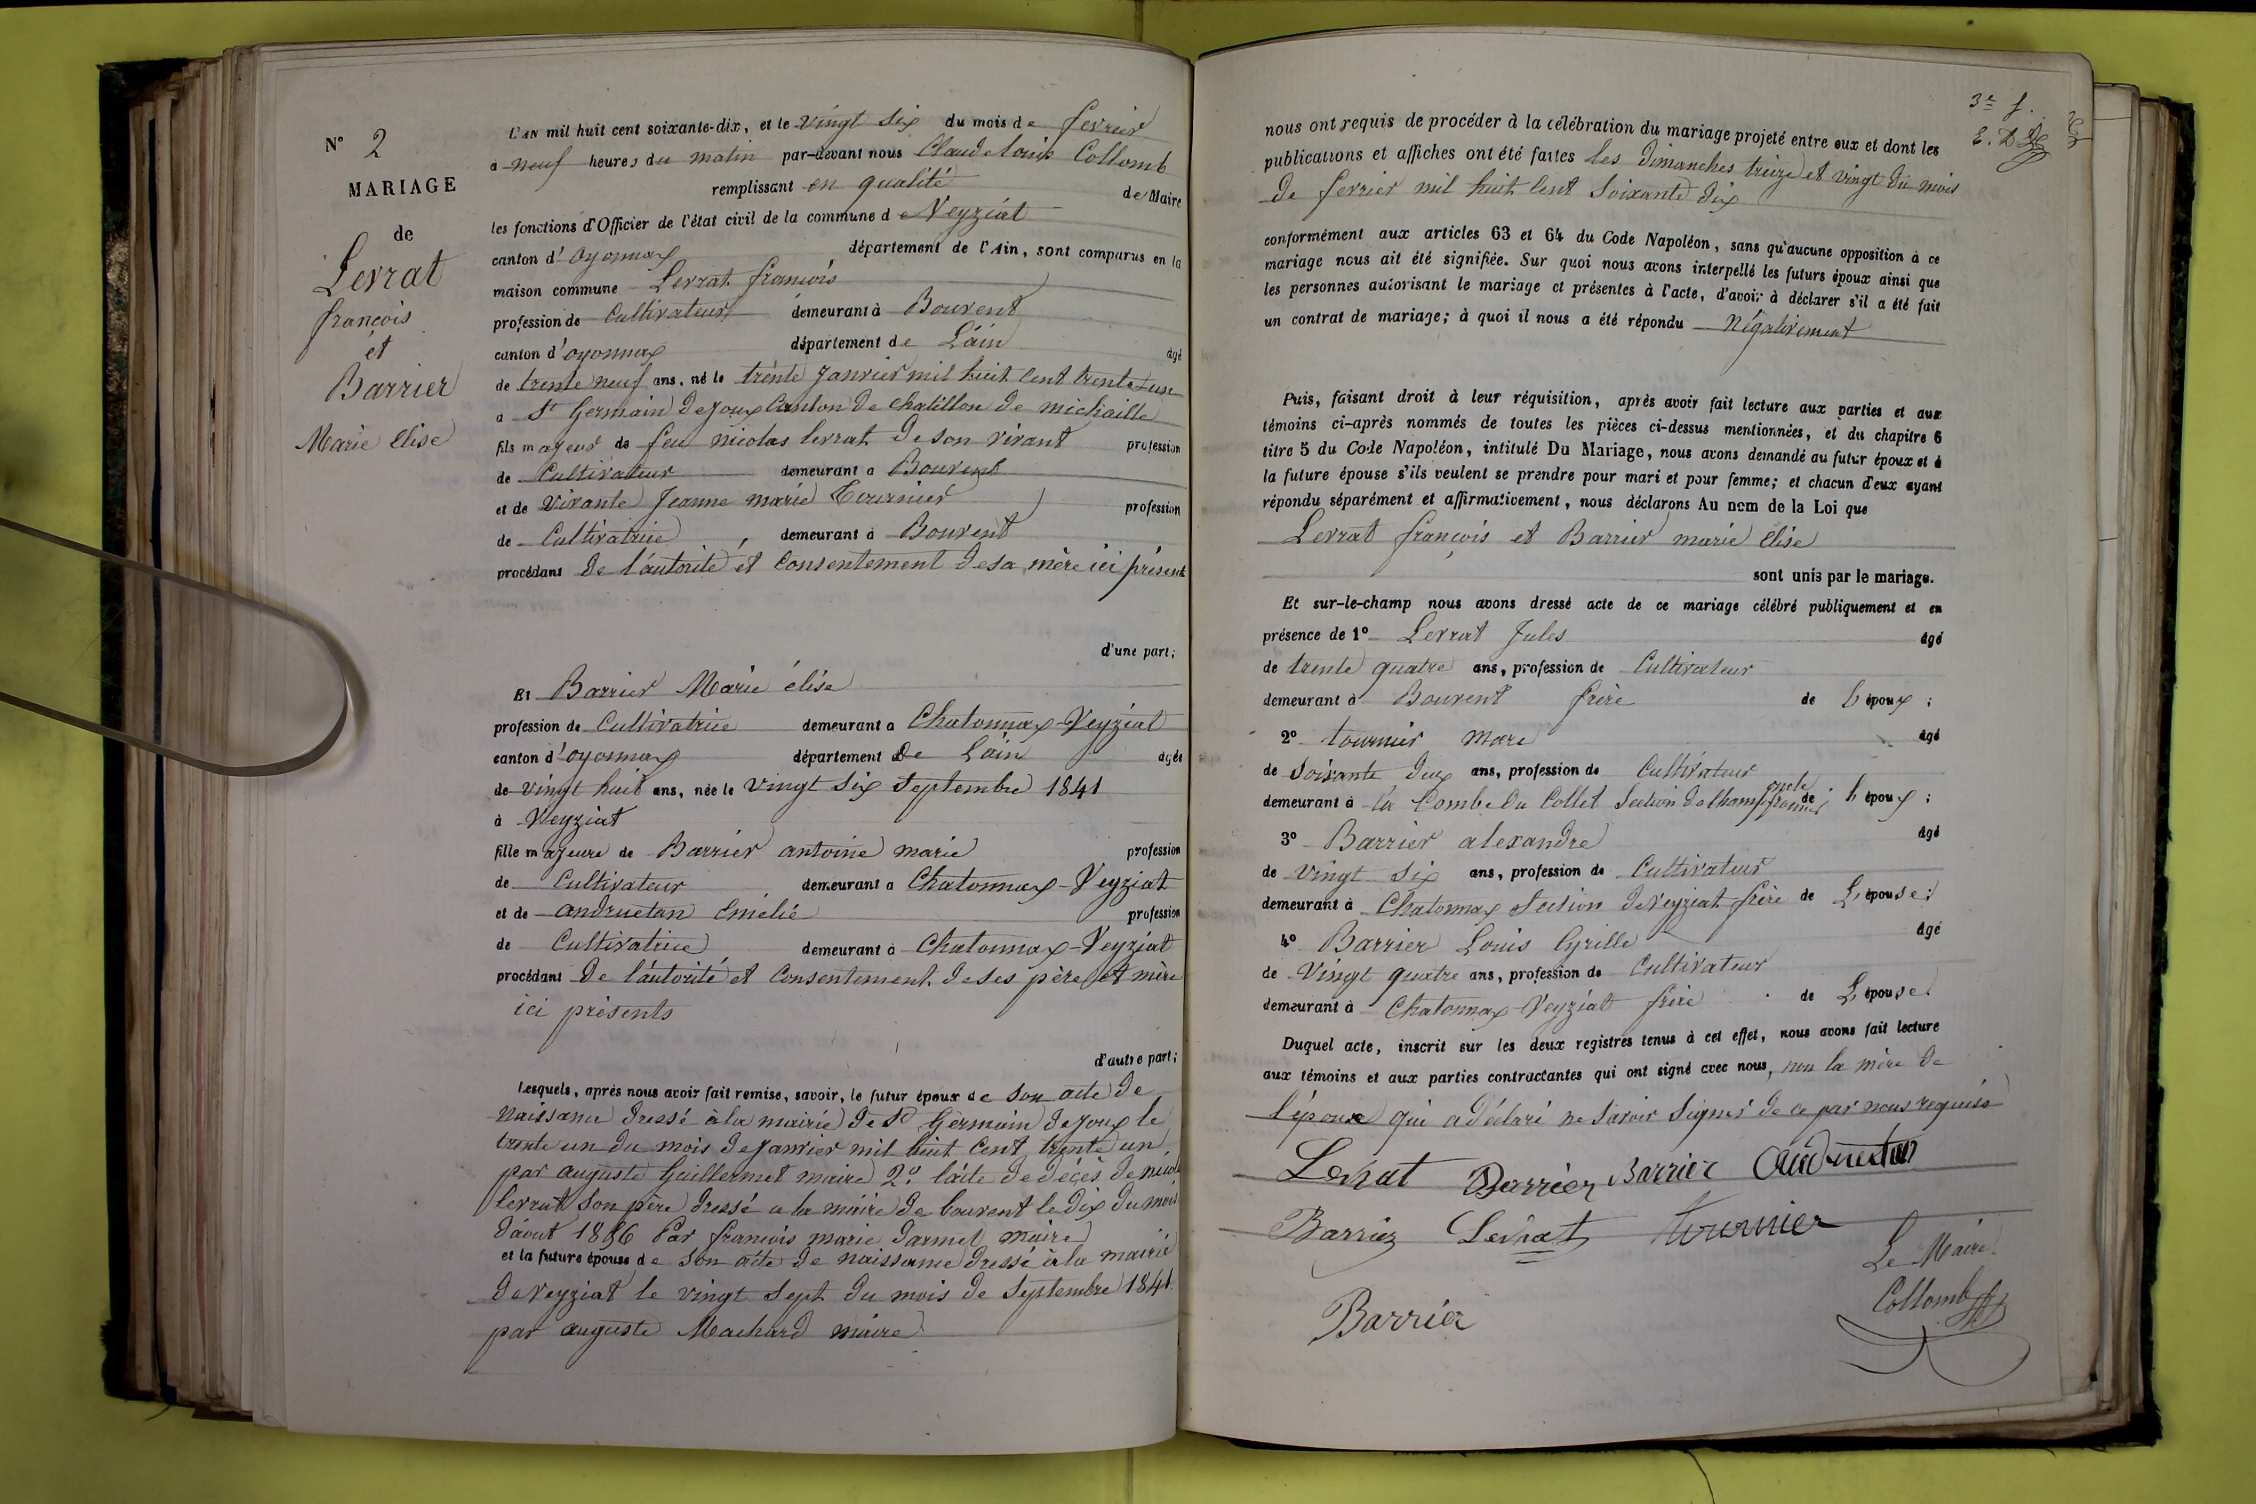 N° 2
MARIAGE
de
Levrat
françois
et
Barrier
Marie élise
L'AN mil huit cent soixante-dix, et le vingt six du mois de fevrier
à neuf heures du matin par-devant nous Claude louis Collomb
remplissant en qualité de Maire
les fonctions d'Officier de l'état civil de la commune de Veyziat
canton d'oyonnax département de l'Ain, sont comparus en la
maison commune Levrat françois
profession de Cultivateur demeurant à Bouvent
canton d'oyonnax département de L'ain âgé
de trente neuf ans, né le trente Janvier mil huit cent trente-un
à St Germain de Joux Canton de chatillon de michaille
fils majeur de feu nicolas levrat de son vivant profession
de Cultivateur demeurant à Bouvent
et de vivante Jeanne marie Tournier profession
de Cultivatrice, demeurant à Bouvent
procédant de l'autorité et Consentement de sa mère ici présent
d'une part;
Et Barrier Marie élise
profession de Cultivatrice demeurant à Chatonnax-Veyziat
canton d'oyonnax département de Lain âgée
de vingt huit ans, née le vingt six septembre 1841
à Veyziat
fille majeure de Barrier antoine marie profession
de Cultivateur demeurant à Chatonnax-Veyziat
et de andruetan émélie profession
de Cultivatrice demeurant à Chatonnax-Veyziat
procédant de l'autorité et Consentement de ses père et mère
ici présents
d'autre part;
Lesquels, après nous avoir fait remise, savoir, le futur époux de son acte de
naissance dressé à la mairie de St Germain de Joux le
trente un du mois de Janvier mil huit cent trente un
par auguste Guillermet maire 2° l'acte de décès de
levrat son père dressé a la mairie de bouvent le dix du mois
d'aout 1856 Par françois marie Darmet maire
et la future épouse de son acte de naissance dressé à la mairie
de Veyziat le vingt sept du mois de septembre 1841
par auguste Machard maire
3e f.
nous ont requis de procéder à la célébration du mariage projeté entre eux et dont les
publications et affiches ont été faites les dimanches treize et vingt du mois
de fevrier mil huit cent soixante dix
conformément aux articles 63 et 64 du Code Napoléon, sans qu'aucune opposition à ce
mariage nous ait été signifiée. Sur quoi nous avons interpellé les futurs époux ainsi que
les personnes autorisant le mariage et présentes à l'acte, d'avoir à déclarer s'il a été fait
un contrat de mariage; à quoi il nous a été répondu Négativement
Puis, faisant droit à leur réquisition, après avoir fait lecture aux parties et aux
témoins ci-après nommés de toutes les pièces ci-dessus mentionnées, et du chapitre 6
titre 5 du Code Napoléon, intitulé Du Mariage, nous avons demandé au futur époux et à
la future épouse s'ils veulent se prendre pour mari et pour femme; et chacun d'eux ayant
répondu séparément et affirmativement, nous déclarons Au nom de la Loi que
Levrat françois et Barrier marie élise
sont unis par le mariage.
Et sur-le-champ nous avons dressé acte de ce mariage célébré publiquement et en
présence de 1° Levrat Jules âgé
de trente quatre ans, profession de Cultivateur
demeurant à Bouvent frère de l'époux;
2° tournier Marc âgé
de soixante deux ans, profession de Cultivateur
demeurant à la Combe du Collet Section de Champfromier oncle de l'époux;
3° Barrier alexandre âgé
de vingt six ans, profession de Cultivateur
demeurant à Chatonnax Section de Veyziat frère de L'épouse;
4° Barrier Louis Cyrille âgé
de vingt quatre ans, profession de Cultivateur
demeurant à Chatonnax-Veyziat frère de L'épouse.
Duquel acte, inscrit sur les deux registres tenus à cet effet, nous avons fait lecture
aux témoins et aux parties contractantes qui ont signé avec nous, non la mère de
l'époux qui a déclaré ne savoir signer de ce par nous requise
Levrat Barrier Barrier Andruetan
Barrier Levrat tournier
Le Maire
Collomb
Barrier